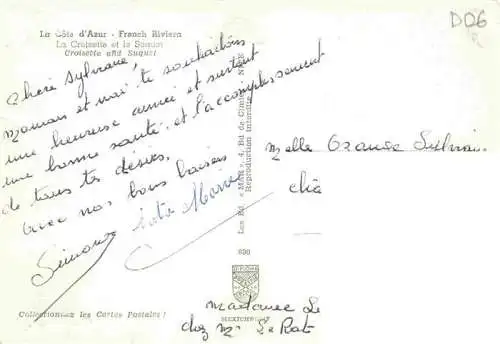 La Côte d'Azur - French Riviera
La Croisette et le Suquet
Croisette and Suquet
D06
Chère Sylviane,
Maman et moi te souhaitons
une heureuse année et surtout
une bonne santé et l'accomplissement
de tous tes désirs.
Avec nos bons baisers
Simone
Marie
Les Ed. « MAR », 4, Bd de Cimiez - NICE
Reproduction interdite
690
Melle
chez
Madame Le
chez Mr Le Rate
Collectionnez les Cartes Postales !